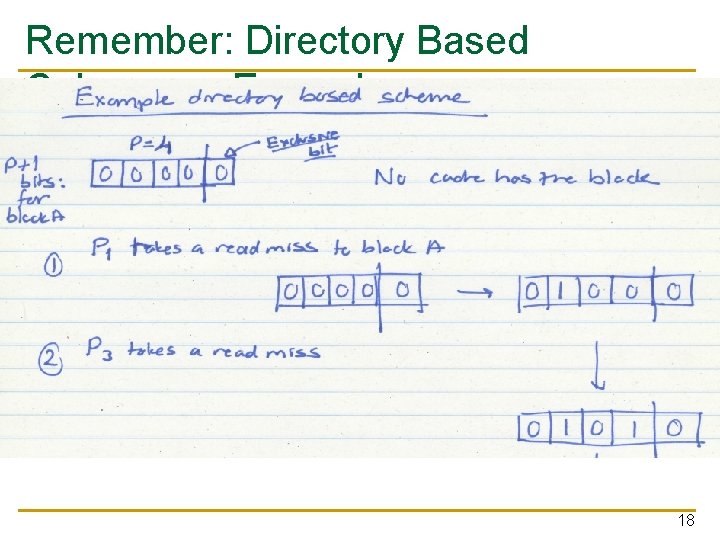 Remember: Directory Based
Example directory based scheme
P=4
Exclusive bit
P+1 bits: for block A
0 0 0 0 0
No cache has the block
① P1 takes a read miss to block A
0 0 0 0 0 → 0 1 0 0 0
② P3 takes a read miss
↓
0 1 0 1 0
18